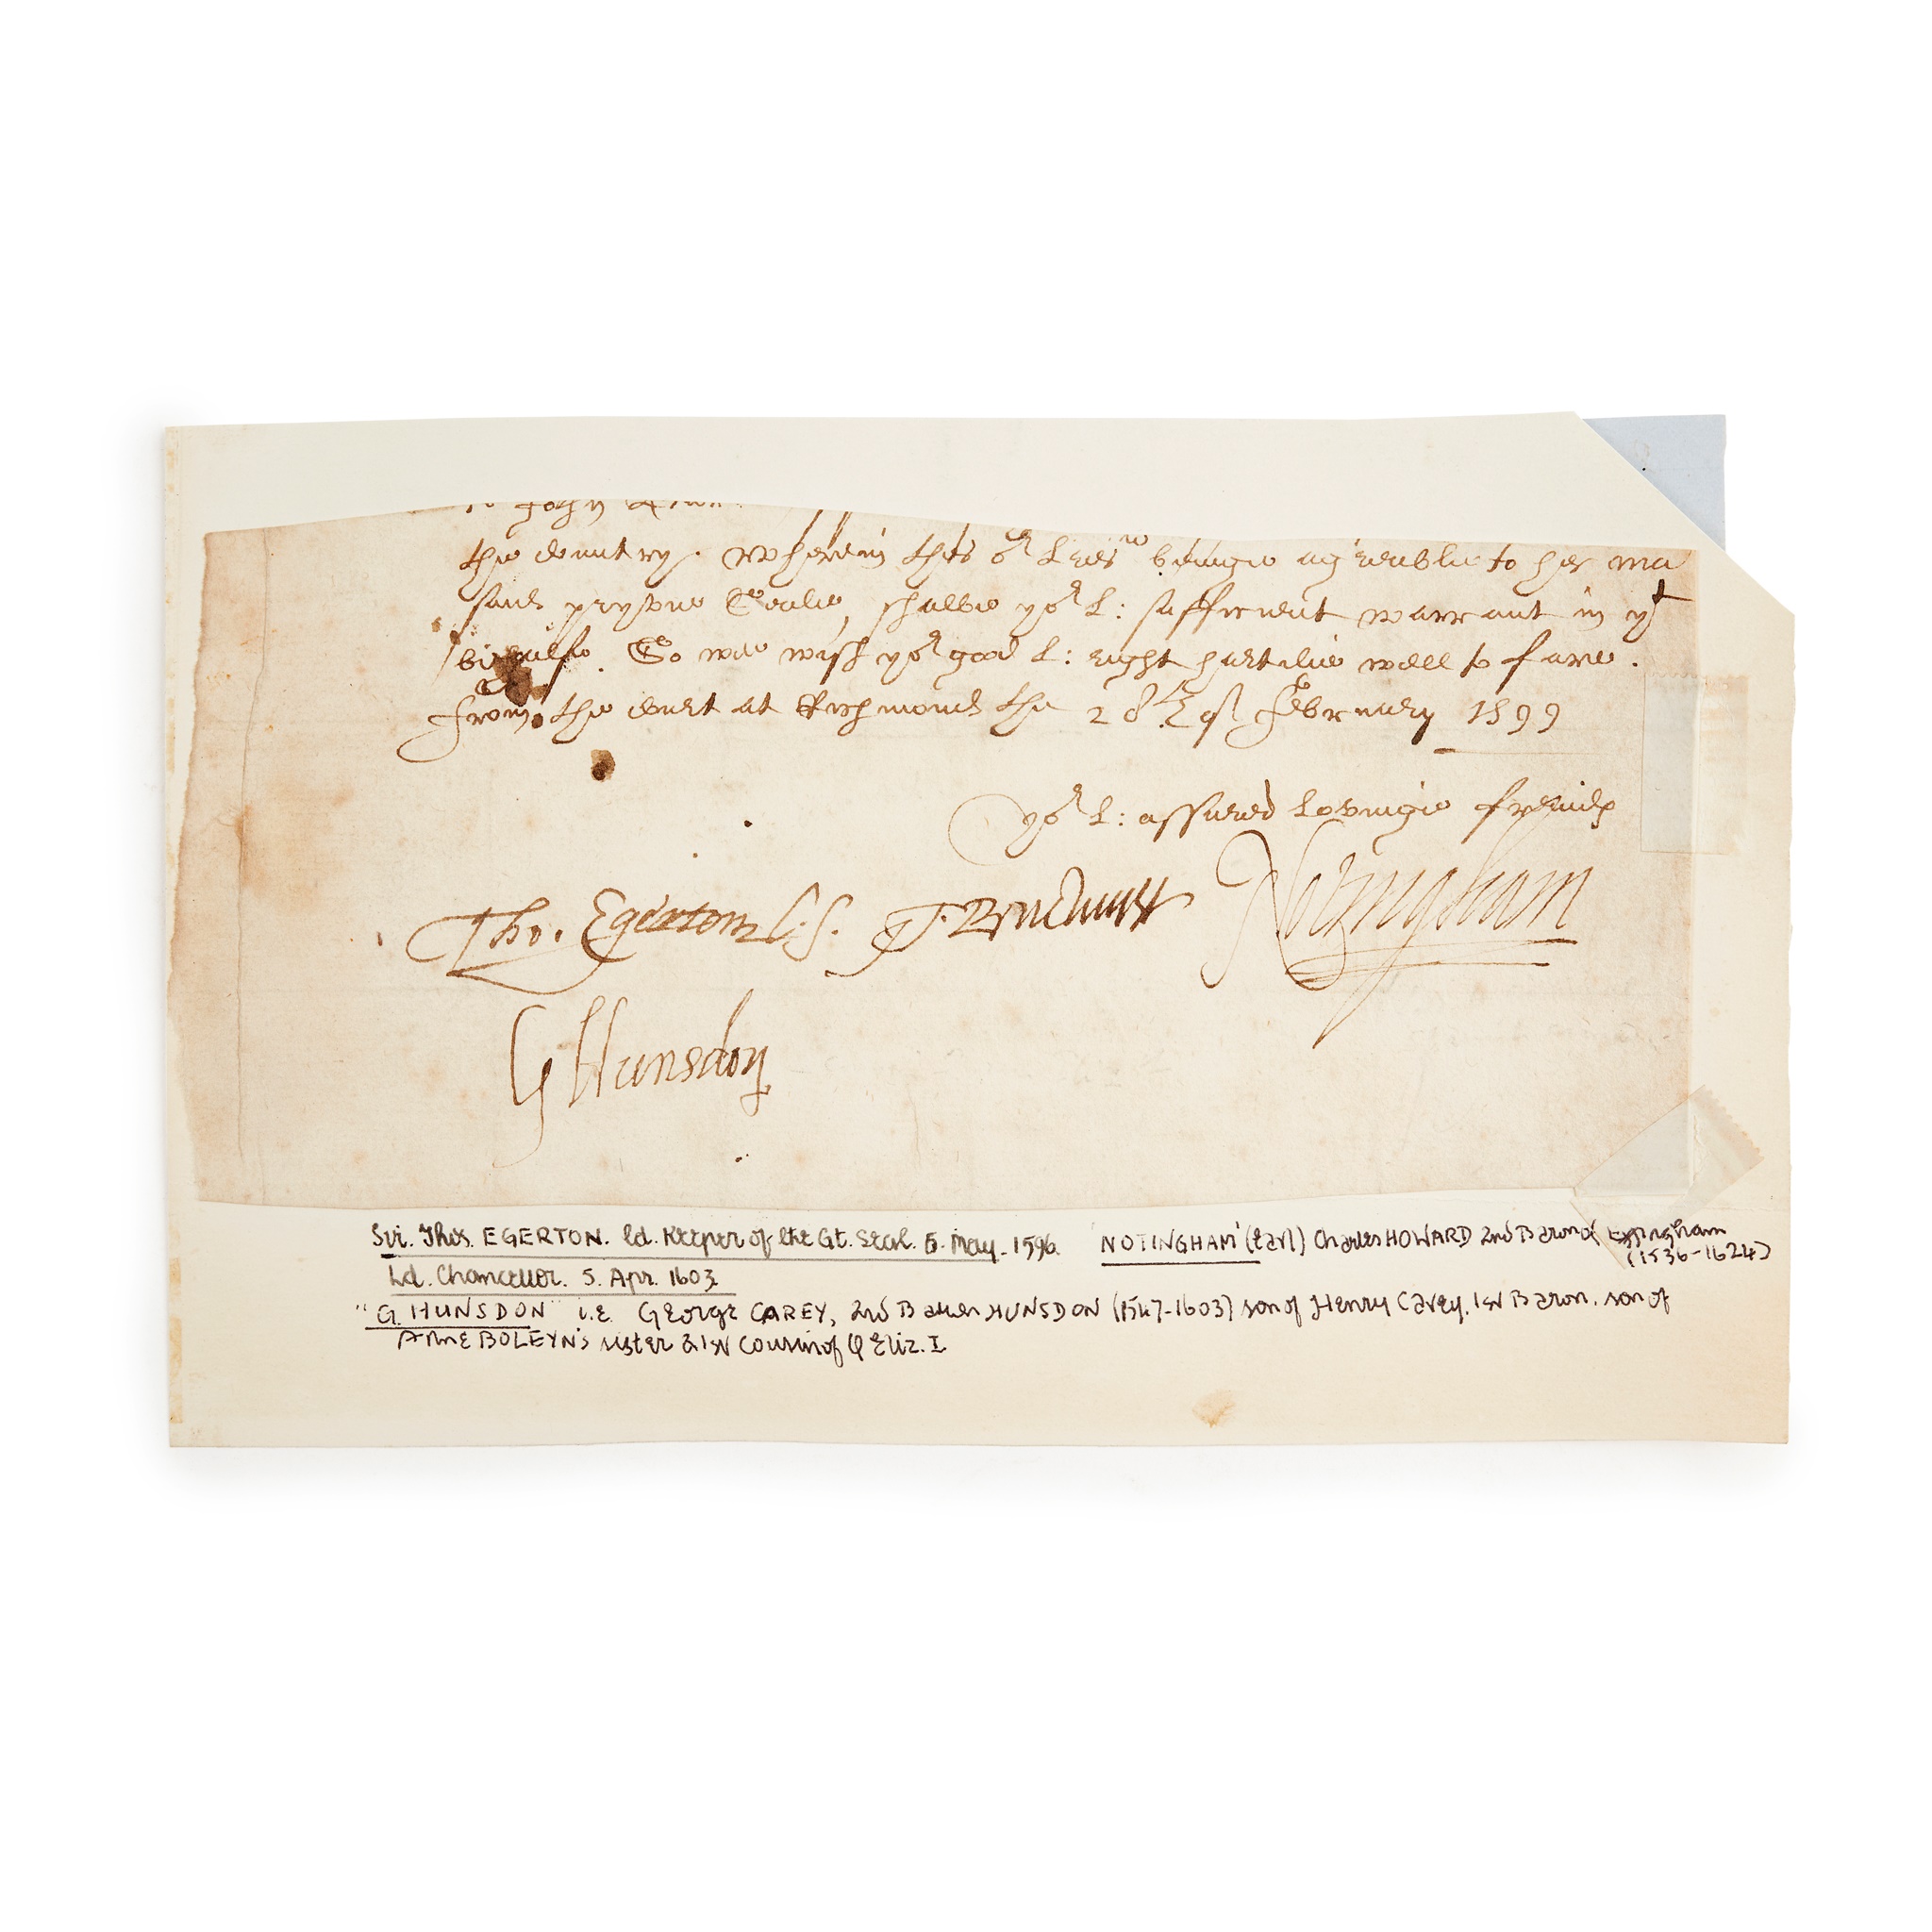 to John
the countrye. Wherein thes or Lres beinge agreeable to her ma
shalbe yor L: sufficient warrant in yt
behaulfe. So wee wish yor good L: right hartelie well to fare.
From the Court at Richmond the 28th of February 1599
yor L: assured lovinge freinds
Tho. Egerton C.S. T. Buchurst Notingham
G Hunsdon
Sir. Thos. EGERTON. Ld. Keeper of the Gt. Seal. 6. May. 1596. 'NOTINGHAM' (Earl) Charles HOWARD 2nd Baron of Effingham
(1536-1624)
Ld. Chancellor. 5. Apr. 1603
"G. HUNSDON" i.e. George CAREY, 2nd Baron HUNSDON (1547-1603) son of Henry Carey, 1st Baron, son of
Anne BOLEYN's sister & 1st Cousin of Q Eliz. I